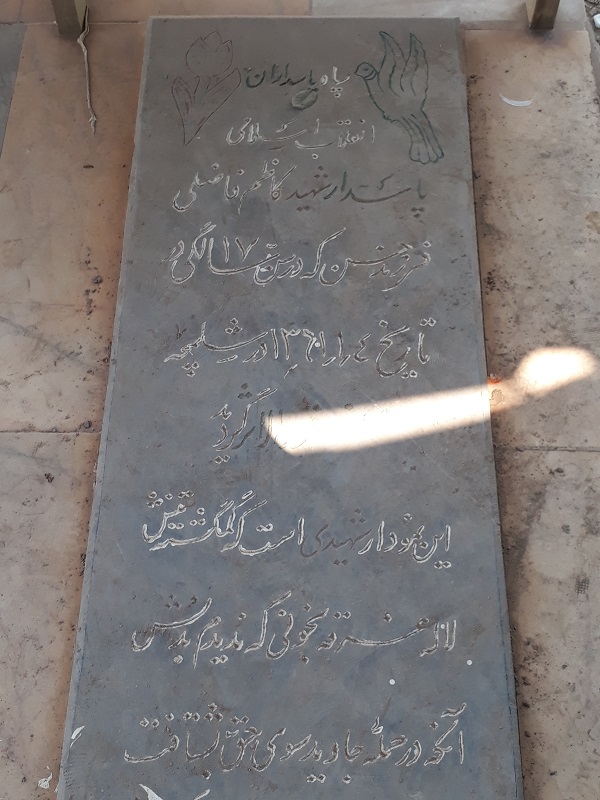 سپاه پاسداران
انقلاب اسلامی
پاسدار شهید کاظم فاضلی
فرزند حسن که در سن ۱۷ سالگی در
تاریخ ۱۳۶۱/۱/۴ در شلمچه
گردید
این نمودار شهیدی است که گمگشته تنش
لاله غرقه بخونی که ندیدم بدنش
آنکه در حمله جاوید سوی حق بشتافت